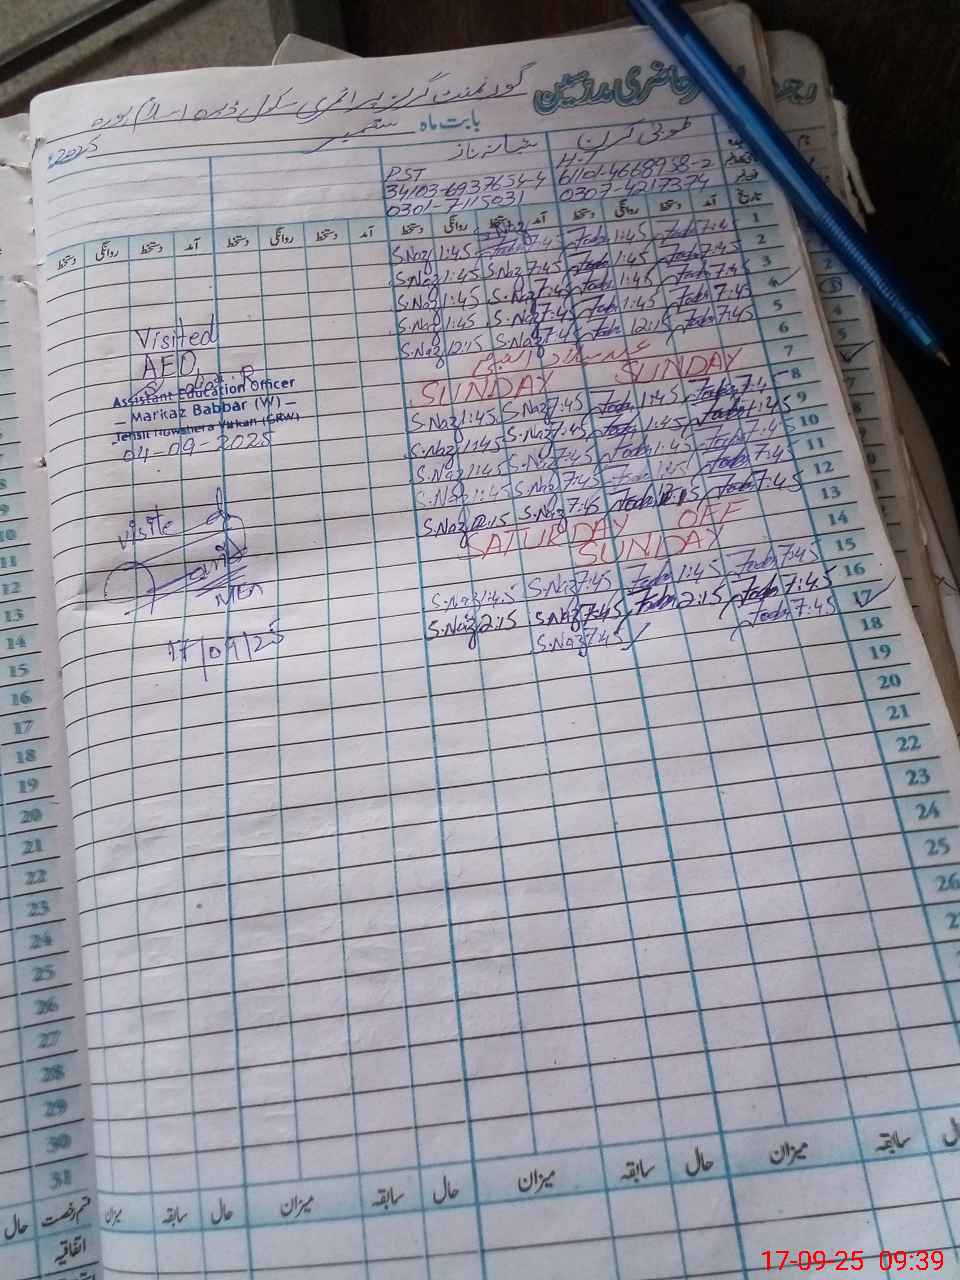 حاضری مدرسین
گورنمنٹ گرلز پرائمری سکول ڈیرہ اسلام پورہ
بابت ماہ ستمبر 2025
شبانہ ناز
PST H.T
34103-6937654-4 61101-4668958-2
0301-7115031 0307-4217374
تاریخ
آمد دستخط روانگی دستخط آمد دستخط روانگی دستخط آمد دستخط روانگی دستخط آمد دستخط روانگی دستخط
1 7:45 1:45 7:45 S.Naz 1:45
2 7:45 1:45 S.Naz 7:45 S.Naz 1:45
3 7:45 1:45 S.Naz 7:45 S.Naz 1:45
4 7:45 1:45 S.Naz 7:45 S.Naz 1:45
5 7:45 12:15 S.Naz 7:45 S.Naz 12:15
6 عید میلاد النبی
7 SUNDAY SUNDAY
8 7:45 1:45 S.Naz 7:45 S.Naz 1:45
9 1:45 1:45 S.Naz 7:45 S.Naz 1:45
10 7:45 1:45 S.Naz 7:45 S.Naz 1:45
11 7:45 1:45 S.Naz 7:45 S.Naz 1:45
12 7:45 12:15 S.Naz 7:45 S.Naz 12:15
13 SATURDAY OFF
14 SUNDAY
15 7:45 1:45 S.Naz 7:45 S.Naz 1:45
16 7:45 2:15 S.Naz 7:45 S.Naz 2:15
17 7:45 S.Naz 7:45
18
19
20
21
22
23
24
25
26
Visited
AEO,
Assistant Education Officer
Markaz Babbar (W)
Tehsil Nowshera Virkan (GRW)
04-09-2025
visited
MEA
17/09/25
9
10
11
12
13
14
15
16
17
18
19
20
21
22
23
24
25
26
27
28
29
30
31
حال سابقہ میزان حال سابقہ میزان حال سابقہ میزان حال سابقہ میزان قسم رخصت حال
اتفاقیہ
17-09-25 09:39